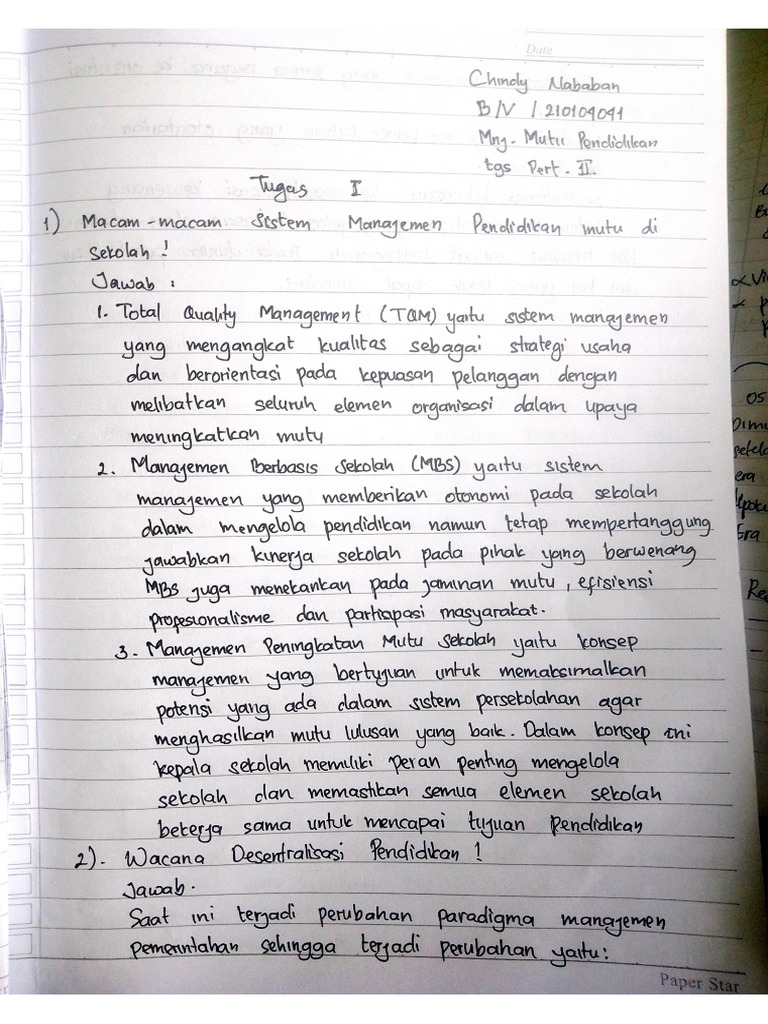 Date
Chindy Nababan
B/V / 210104041
Mnj. Mutu Pendidikan
tgs Pert. II.
Tugas I
1) Macam-macam Sistem Manajemen Pendidikan mutu di
Sekolah!
Jawab :
1. Total Quality Management (TQM) yaitu sistem manajemen
yang mengangkat kualitas sebagai strategi usaha
dan berorientasi pada kepuasan pelanggan dengan
melibatkan seluruh elemen organisasi dalam upaya
meningkatkan mutu
2. Manajemen Berbasis Sekolah (MBS) yaitu sistem
manajemen yang memberikan otonomi pada sekolah
dalam mengelola pendidikan namun tetap mempertanggung
jawabkan kinerja sekolah pada pihak yang berwenang
MBS juga menekankan pada jaminan mutu, efisiensi
profesionalisme dan partisipasi masyarakat.
3. Manajemen Peningkatan Mutu Sekolah yaitu konsep
manajemen yang bertujuan untuk memaksimalkan
potensi yang ada dalam sistem persekolahan agar
menghasilkan mutu lulusan yang baik. Dalam konsep ini
kepala sekolah memiliki peran penting mengelola
sekolah dan memastikan semua elemen sekolah
bekerja sama untuk mencapai tujuan Pendidikan
2). Wacana Desentralisasi Pendidikan!
Jawab.
Saat ini terjadi perubahan paradigma manajemen
pemerintahan sehingga terjadi perubahan yaitu:
Paper Star